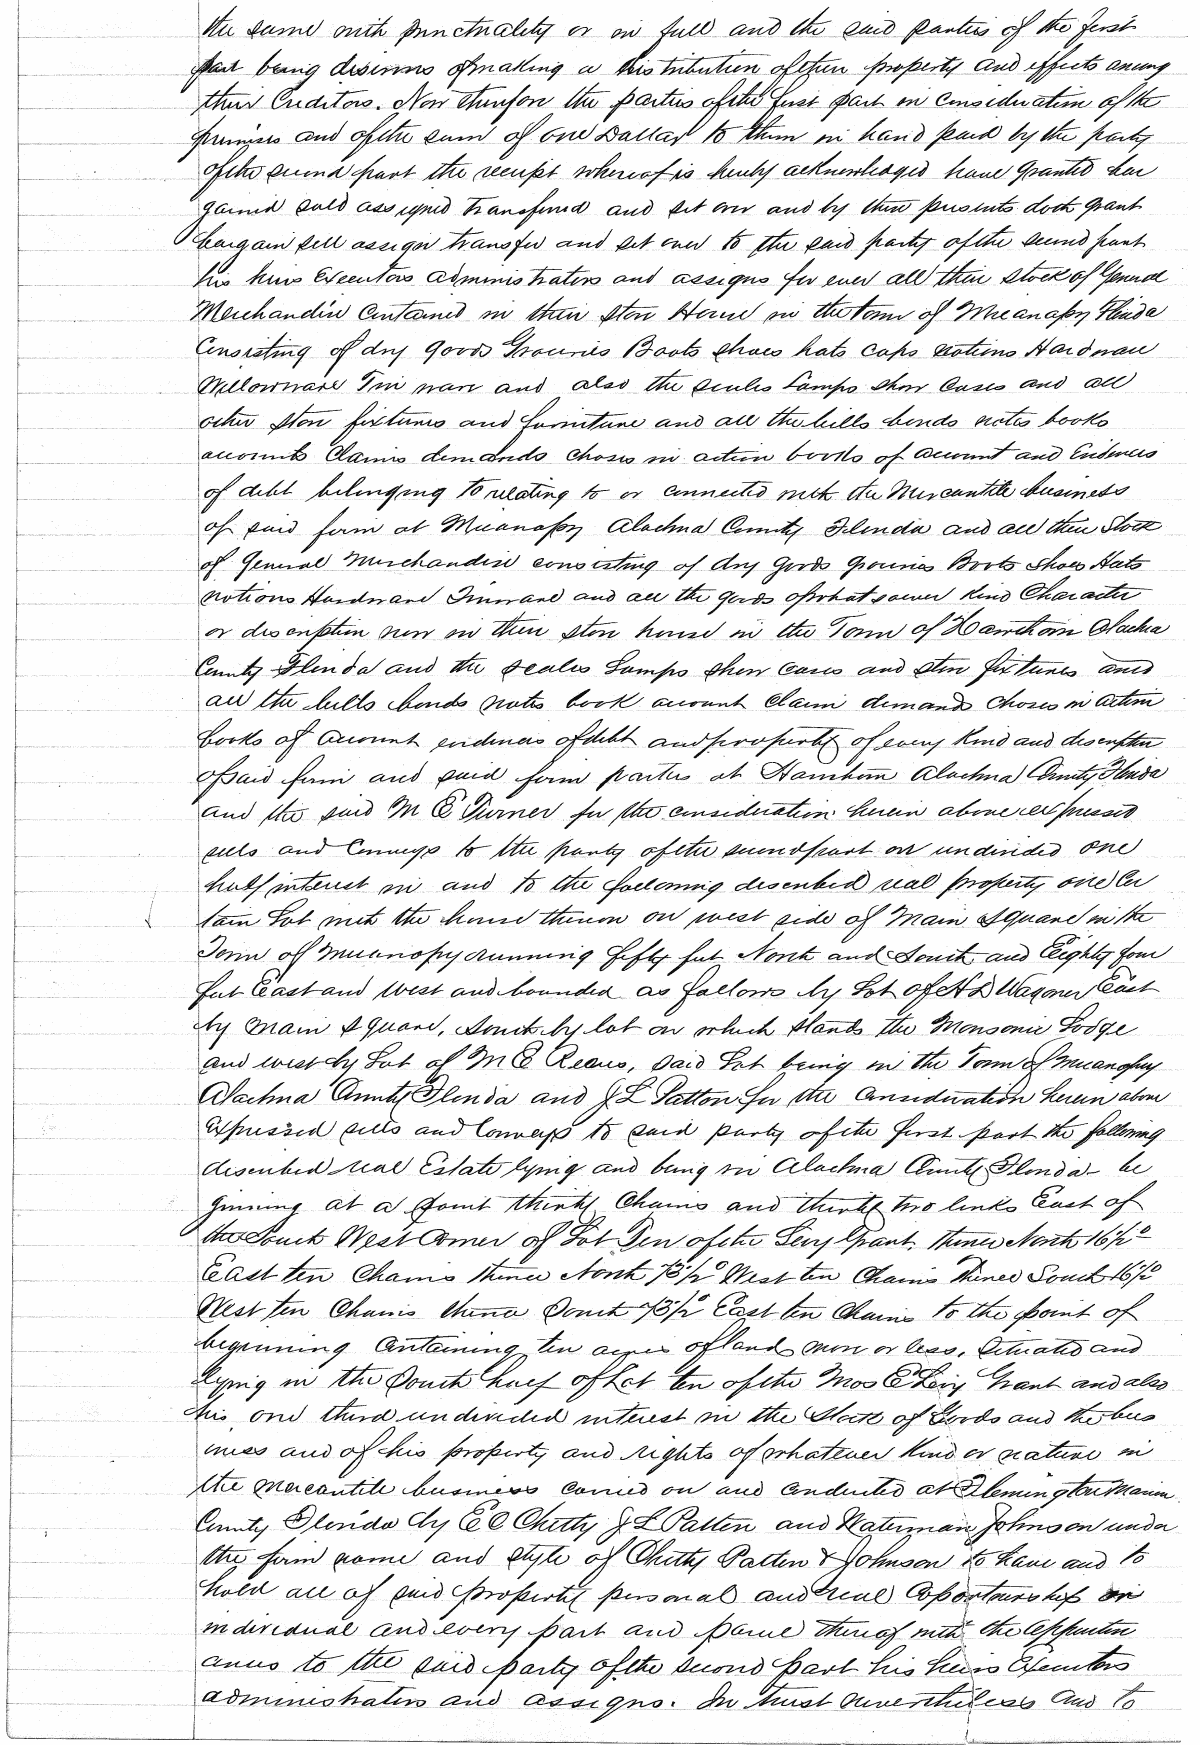 the same with punctuality or in full and the said parties of the first
part being desirous of making a distribution of their property and effects among
their Creditors. Now therefore the parties of the first part in consideration of the
premises and of the sum of one Dollar to them in hand paid by the party
of the second part the receipt whereof is hereby acknowledged have granted bar
gained sold assigned transferred and set over and by these presents doth grant
bargain sell assign transfer and set over to the said party of the second part
his heirs Executors administrators and assigns for ever all their stock of General
Merchandise Contained in their store House in the town of Micanopy Florida
Consisting of dry goods Groceries Boots shoes hats caps notions Hardware
Willowware Tin ware and also the scales Lamps show Cases and all
other store fixtures and furniture and all the bills bonds notes books
accounts Claims demands choses in action books of account and Evidences
of debt belonging to relating to or connected with the Mercantile business
of said firm at Micanopy Alachua County Florida and all their Stock
of General Merchandise consisting of dry goods groceries Boots Shoes Hats
notions Hardware Tinware and all the goods of whatsoever kind Character
or description now in their store house in the Town of Hawthorn Alachua
County Florida and the scales Lamps show cases and store fixtures and
all the bills bonds notes book account claim demands choses in action
books of account evidences of debt and property of every kind and description
of said firm and said firm parties at Hawthorn Alachua County Florida
and the said M E Turner for the consideration herein above expressed
sells and Conveys to the party of the second part an undivided one
half interest in and to the following described real property one Cer
tain Lot with the house thereon on west side of Main Square in the
Town of Micanopy running fifty feet North and South and Eighty four
feet East and West and bounded as follows by Lot of A D Wagoner East
by Main Square, South by lot on which stands the Monsonic Lodge
and west by Lot of M E Reaves, said Lot being in the Town of Micanopy
Alachua County Florida and J L Patton for the Consideration herein above
Expressed sells and Conveys to said party of the first part the following
described real Estate lying and being in Alachua County Florida be
ginning at a point thirty Chains and thirty two links East of
the South West Corner of Lot Ten of the Levy Grant. thence North 16½°
East ten Chains thence North 73½° West ten Chains thence South 16½°
West ten Chains thence South 73½° East ten Chains to the point of
beginning Containing ten acres of land more or less, Situated and
lying in the South half of Lot ten of the Mos E Levy Grant and also
his one third undivided interest in the Stock of Goods and the bus
iness and of his property and rights of whatever kind or nature in
the Mercantile business carried on and conducted at Flemington Marion
County Florida by E C Chitty J L Patten and Waterman Johnson under
the firm name and style of Chitty Patten & Johnson to have and to
hold all of said property personal and real Copartnership or
individual and every part and parcel thereof with the appurten
ances to the said party of the second part his heirs Executors
administrators and assigns. In trust nevertheless and to